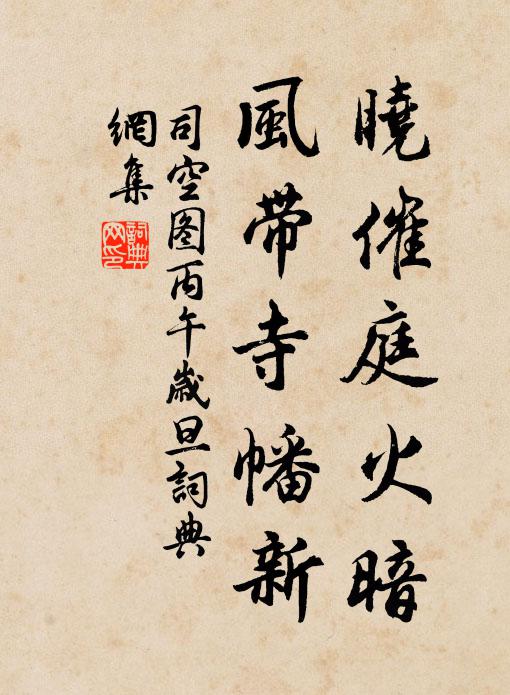 曉催庭火暗
風帶寺幡新
司空图丙午歲旦詞典
網集
詞典
网印